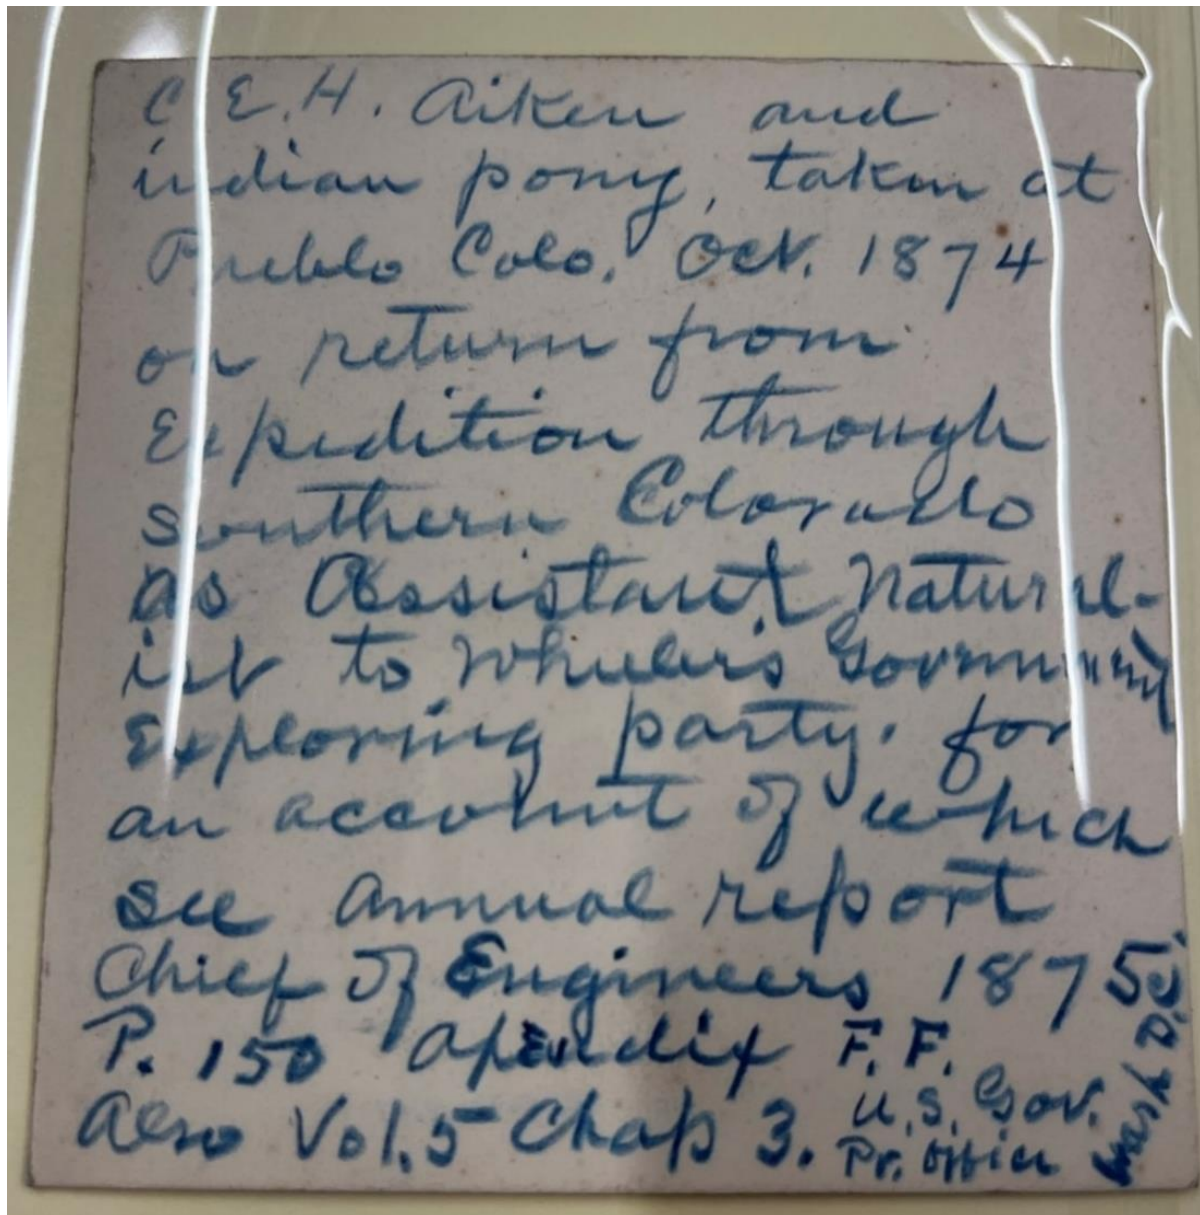 C E. H. Aiken and
indian pony, taken at
Pueblo Colo. Oct. 1874
on return from
Expedition through
southern Colorado
as Assistant Natural-
ist to Wheelers Government
Exploring party. for
an account of which
see annual report
Chief of Engineers 1875
P. 150 Apendix F. F.
Also Vol. 5 Chap 3. U. S. Gov.
Pr. Office
Wash D.C.